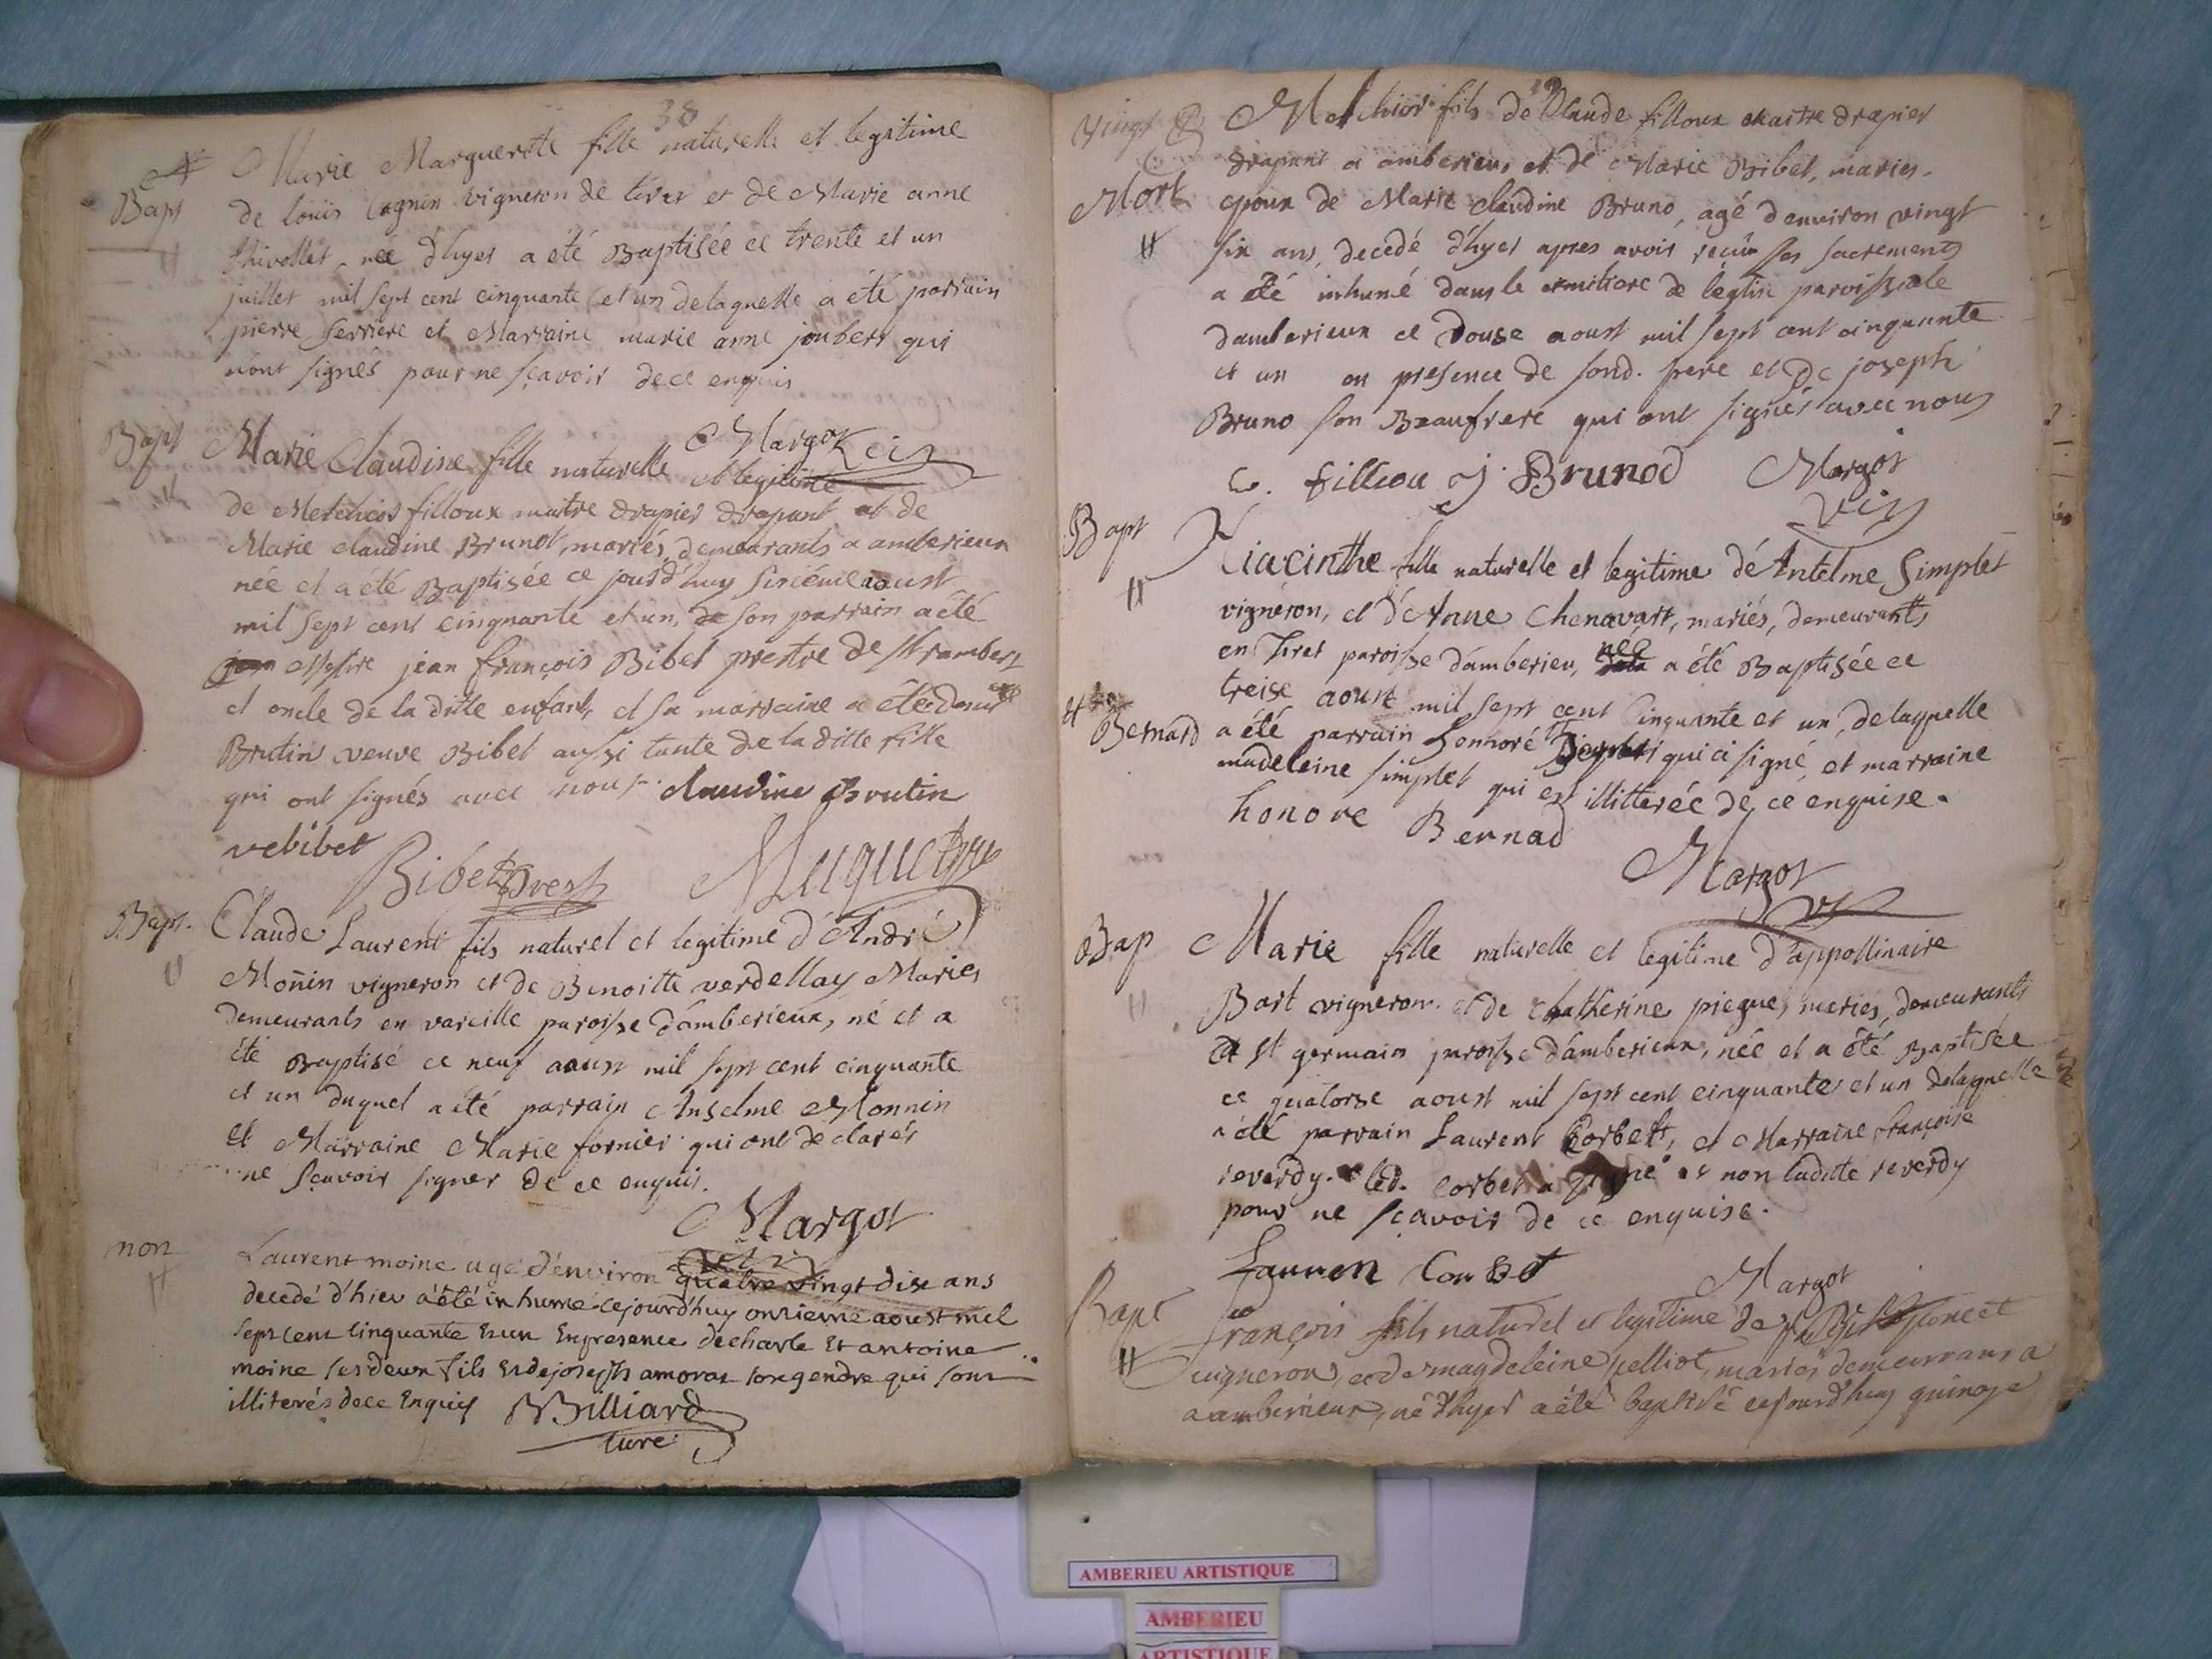 38
Bapt
Marie Marguerite fille naturelle et legitime
de loüis Cognin vigneron de tiret et de Marie anne
thivollet, née d'hyer a été Baptisée ce trente et un
juillet mil sept cent cinquante et un delaquelle a été parrain
pierre ferriere et Marraine marie anne joubert qui
n'ont signés pour ne sçavoir de ce enquis
Margot vic
Bapt
Marie Claudine fille naturelle et legitime
de Melchior filloux maitre drapier drapant et de
Marie claudine Brunot, mariés, demeurants a amberieux
née et a été Baptisée ce jourd'huy sixiéme aoust
mil sept cent cinquante et un, de son parrain a été
Messire jean françois Bibet prestre de st rambert
et oncle de la ditte enfant, et sa marraine a été
Brutin veuve Bibet aussi tante de la ditte fille
qui ont signés avec nous. claudine Brutin
vebibet
Bibet
Bapt.
Claude Laurent fils naturel et legitime d'André
Moñin vigneron et de Benoitte verdellay Maries
demeurants en vareille paroisse d'amberieux, né et a
été Baptisé ce neuf aoust mil sept cent cinquante
et un duquel a été parrain Anselme Monnin
et Marraine Marie fornier qui ont declarés
ne sçavoir signer de ce enquis.
Margot
mon
Laurent moine agé d'environ quatre vingt dix ans
decedé d'hier a été inhumé cejourd'huy onzieme aoust mil
sept cent cinquante et un En presence de charle Et antoine
moine ses deux fils Et de joseph amoraz son gendre qui sont
illiterés de ce Enquis Billiard
curé
vingt
Mort
Melchior fils de Claude filloux maitre drapier
drapant a amberieux et de Marie Bibet, maries.
epoux de Marie claudine Bruno, agé d'environ vingt
six ans, decedé d'hyer apres avoir reçüs ses sacrements
a été inhumé dans le cimitiere de l'eglise paroissiale
d'amberieux ce douse aoust mil sept cent cinquante
et un en presence de son d. pere et de joseph
Bruno son Beaufrere qui ont signés avec nous
C. filliou J. Brunod Margot
vic
Bapt
Hiacinthe fille naturelle et legitime d'Antelme Simplet
vigneron, et d'Anne Chenavart, mariés, demeurants
en Tiret paroisse d'amberieu, née a été Baptisée ce
treise aoust mil sept cent Cinquante et un, delaquelle
Bernard
a été parrain honnoré qui a signé, et marraine
madeleine simplet qui est illitterée de ce enquise.
honore Bernad
Margot
Bap
Marie fille naturelle et legitime d'appollinaire
Bart vigneron et de Chatherine piegue, mariés, demeurants
a st germain paroisse d'amberieux, née et a été Baptisée
ce quatorse aoust mil sept cent cinquante et un delaquelle
a été parrain Laurent Corbet, et Marraine françoise
reverdy. led. Corbet a signé et non laditte reverdy
pour ne sçavoir de ce enquise.
Lauren Corbet
Margot
Bapt
françois fils naturel et legitime de poncet
vigneron, et de magdeleine pelliot, mariés demeurrans a
a amberieux, né d'hyer a été baptisé cejourd'huy quinze
AMBERIEU ARTISTIQUE
AMBERIEU
ARTISTIQUE